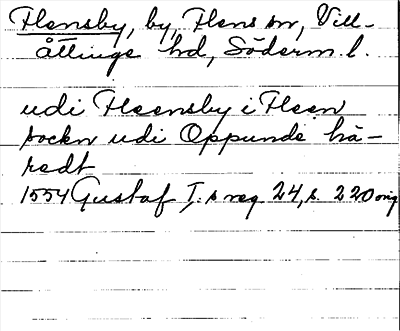 Flensby, by, Flens sn, Vill-
åttinge hd, Söderm. l.
udi Fleensby i Fleen
sockn udi Oppunde hä-
redt
1554 Gustaf I:s reg 24, s. 220 orig